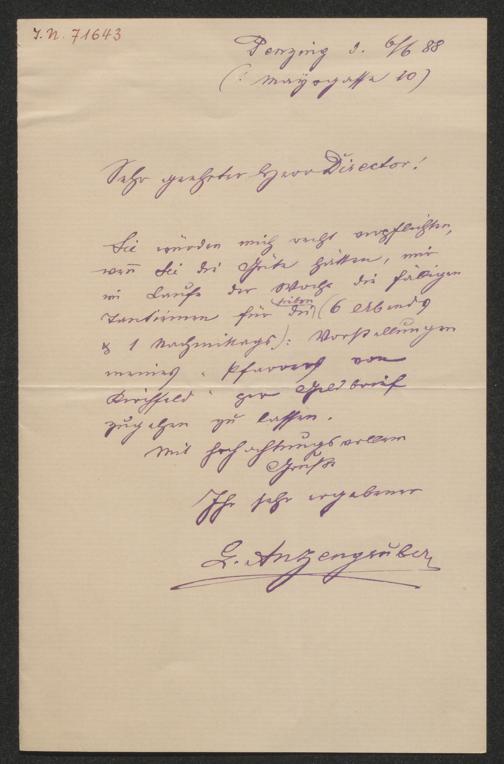 I.N. 71643
Penzing d. 6/6 88
(: Mayrgasse 10)
Sehr geehrter Herr Director!
Sie würden mich recht verpflichten,
weñ Sie die Güte hätten, mir
im Laufe der Woche die fälligen
Tantiemen für die sieben (6 Abends
& 1 Nachmittags): Vorstellungen
meines „Pfarrers von
Kirchfeld" per Geldbrief
zugehen zu lassen.
Mit hochachtungsvollem
Gruße
Ihr sehr ergebener
L. Anzengruber